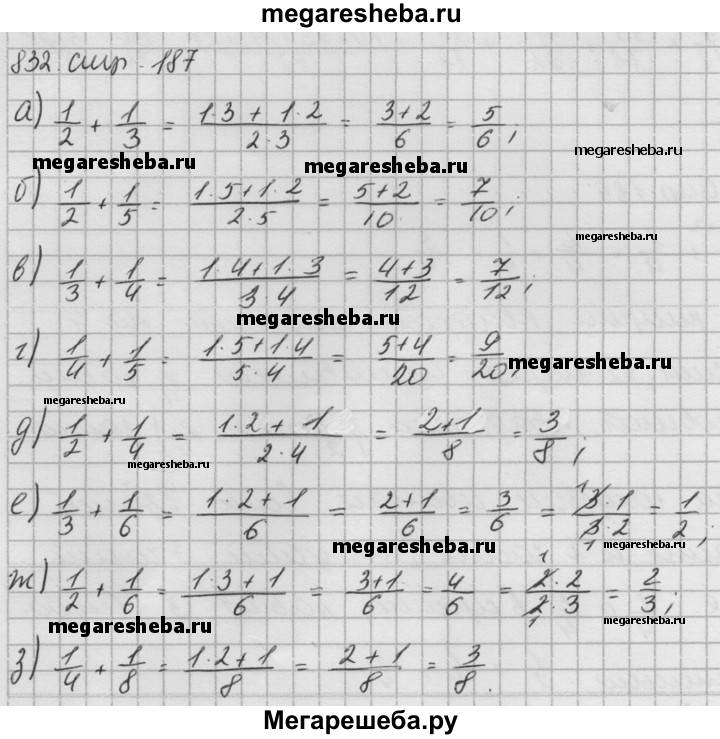 megaresheba.ru
832. стр. 187
а) 1/2 + 1/3 = (1·3 + 1·2)/(2·3) = (3+2)/6 = 5/6;
megaresheba.ru
megaresheba.ru
megaresheba.ru
б) 1/2 + 1/5 = (1·5+1·2)/(2·5) = (5+2)/10 = 7/10;
megaresheba.ru
в) 1/3 + 1/4 = (1·4+1·3)/(3·4) = (4+3)/12 = 7/12;
megaresheba.ru
г) 1/4 + 1/5 = (1·5+1·4)/(5·4) = (5+4)/20 = 9/20;
megaresheba.ru
megaresheba.ru
д) 1/2 + 1/4 = (1·2 + 1)/(2·4) = (2+1)/8 = 3/8;
megaresheba.ru
е) 1/3 + 1/6 = (1·2+1)/6 = (2+1)/6 = 3/6 = (3·1)/(3·2) = 1/2;
megaresheba.ru
megaresheba.ru
ж) 1/2 + 1/6 = (1·3+1)/6 = (3+1)/6 = 4/6 = (2·2)/(2·3) = 2/3;
megaresheba.ru
megaresheba.ru
з) 1/4 + 1/8 = (1·2+1)/8 = (2+1)/8 = 3/8.
Мегарешеба.ру